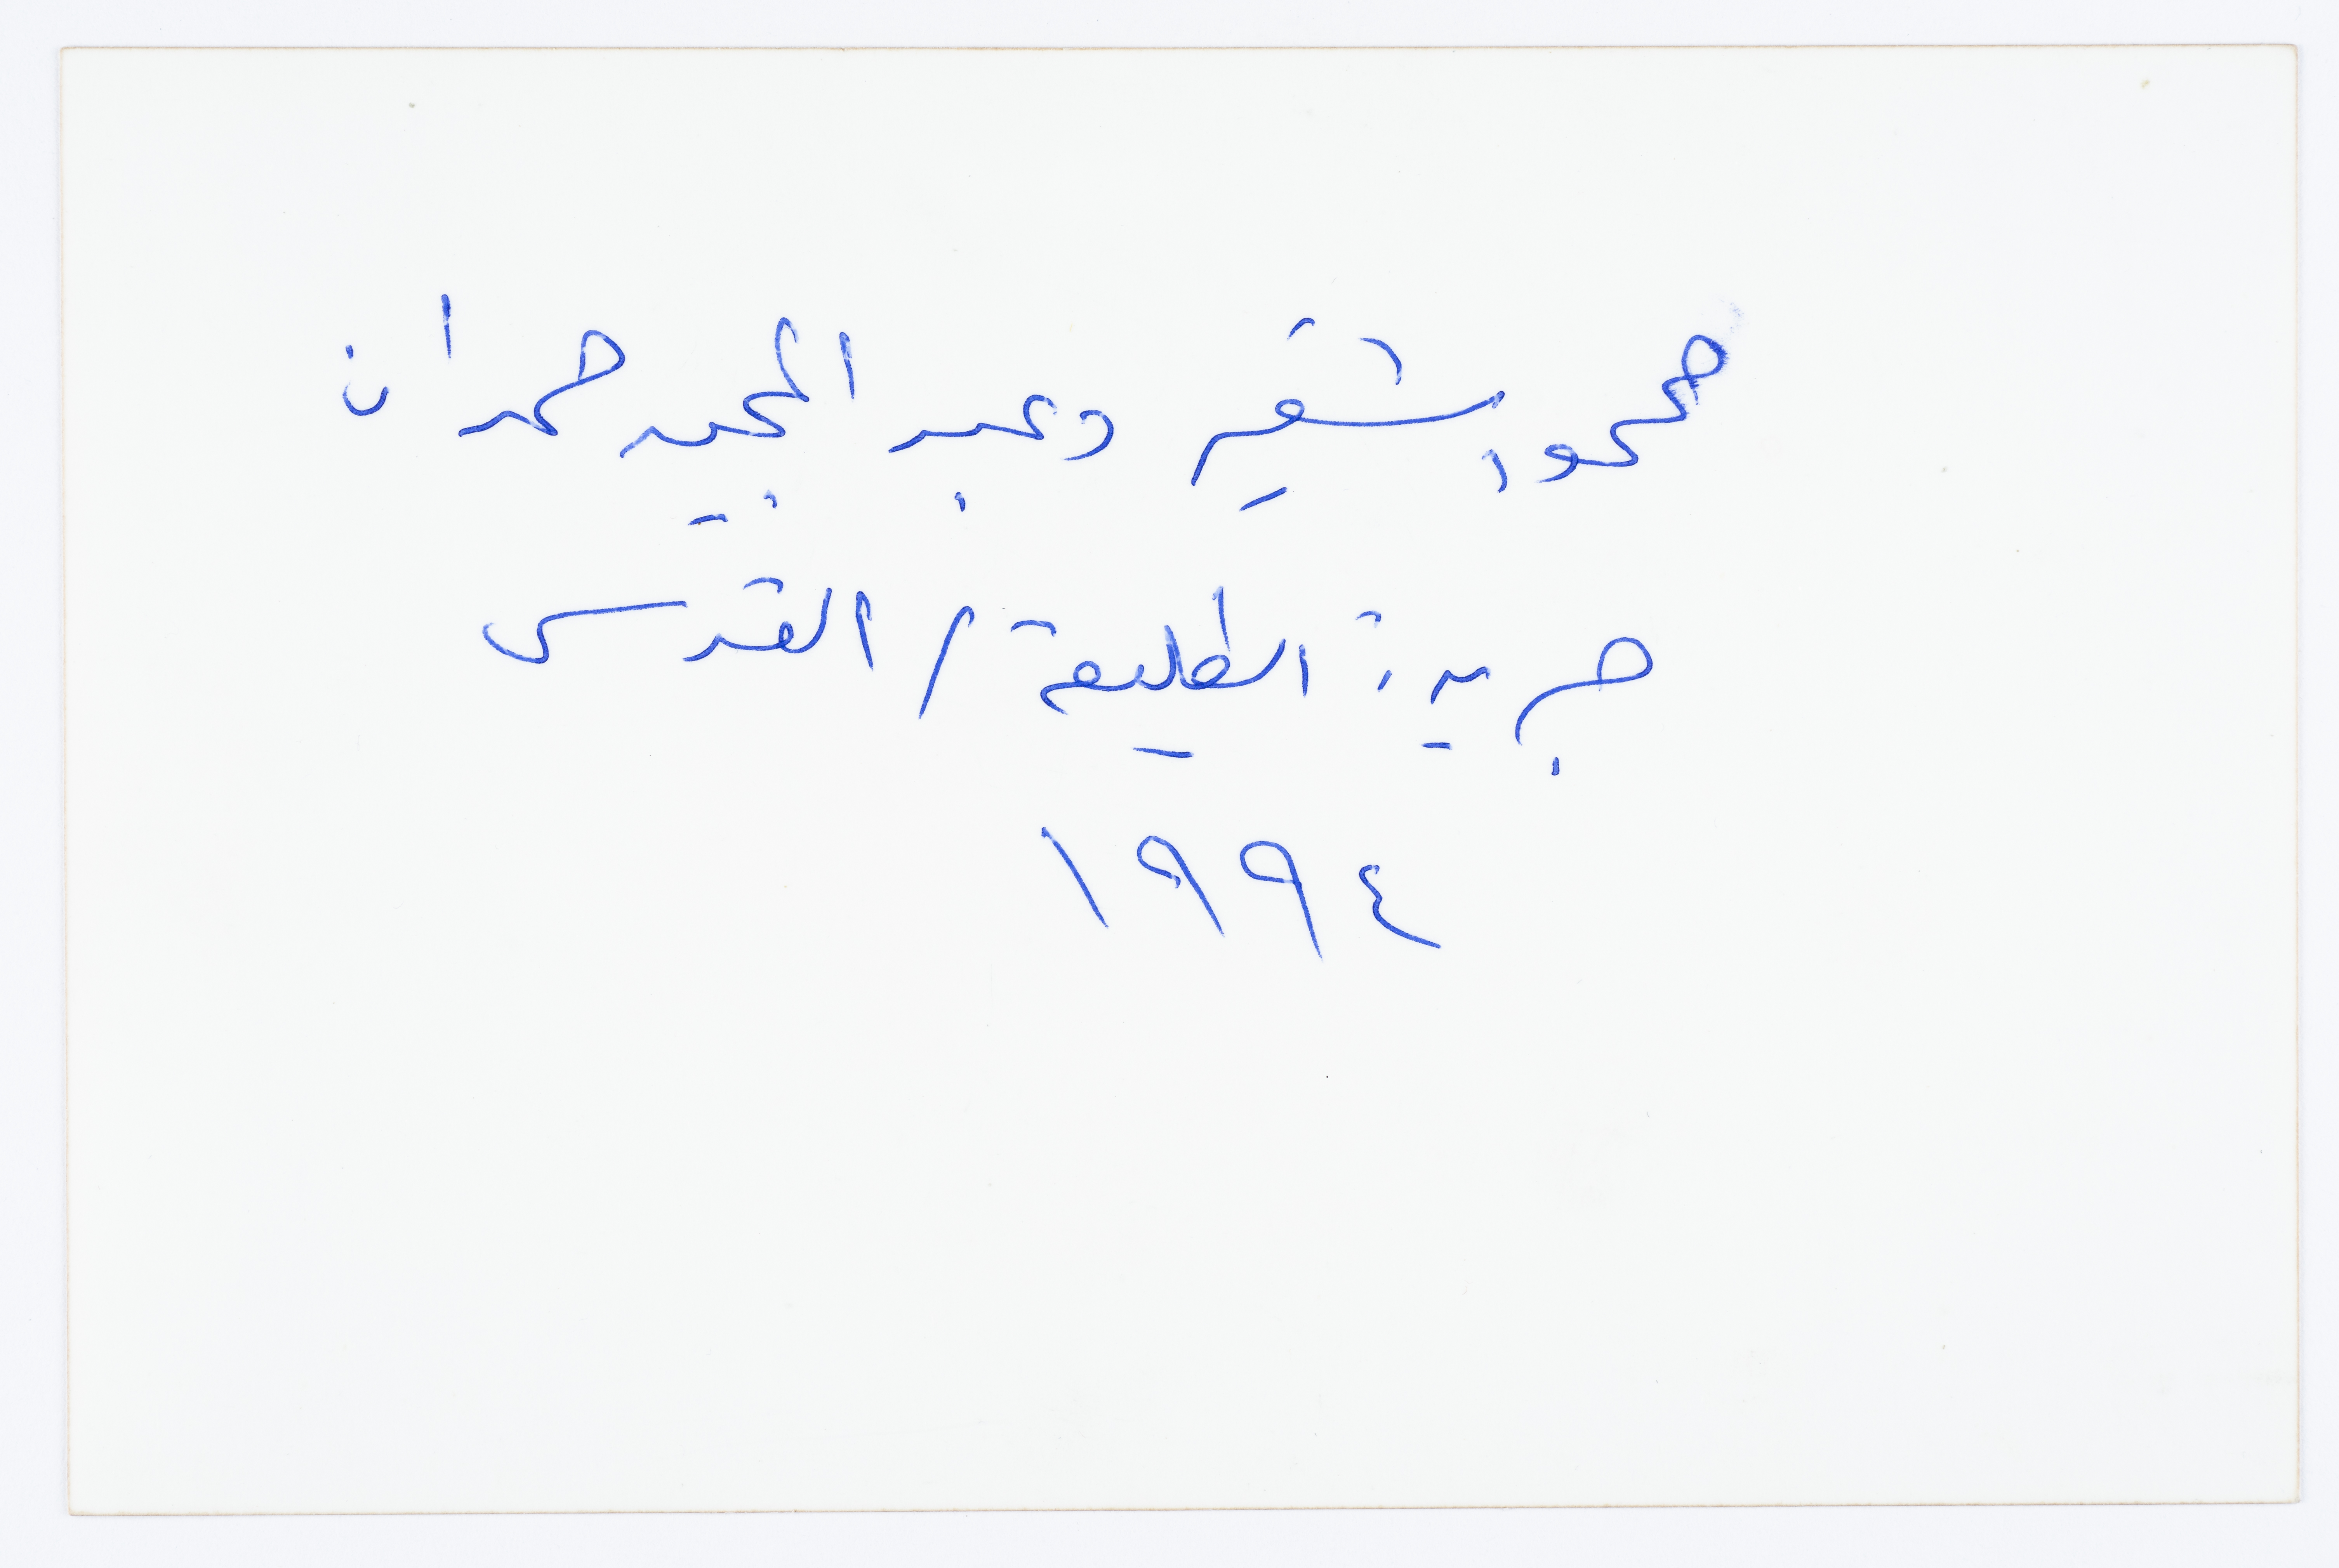 محمود شقير وعبد المجيد حمدان
جريدة الطليعة / القدس
١٩٩٤